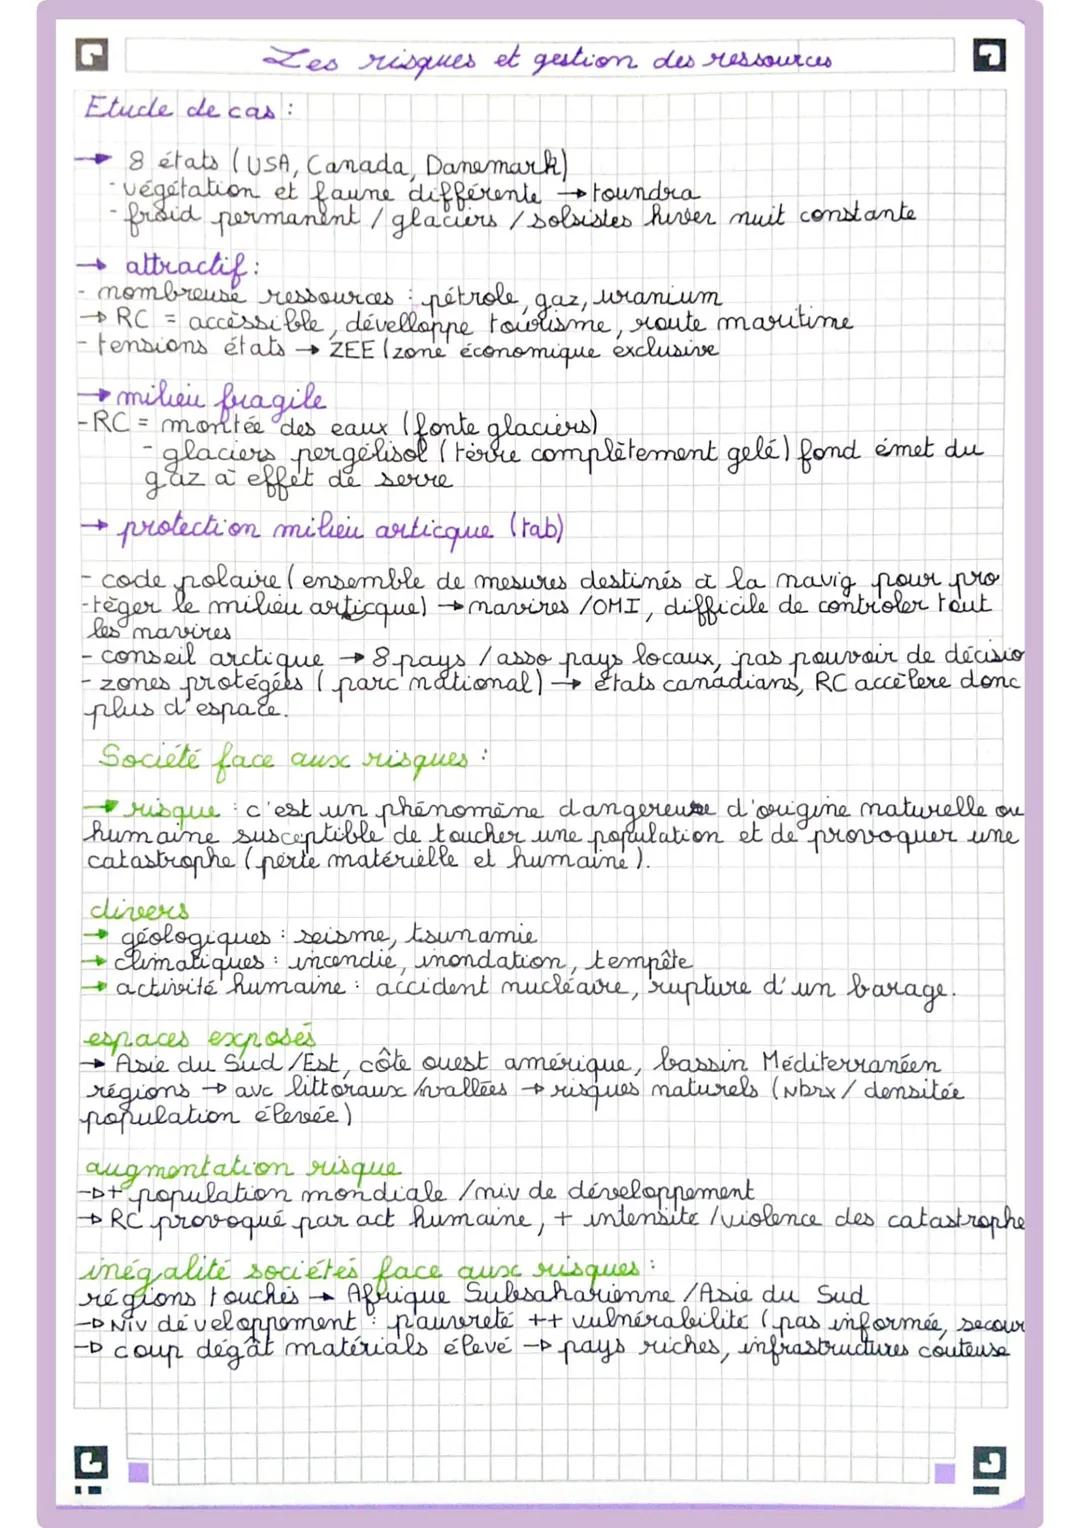 Les risques et gestion des ressources
Etude de cas :
→ 8 états (USA, Canada, Danemark)
- végétation et faune différente → toundra
- froid permanent / glaciers / solsistes hiver nuit constante
→ attractif :
- nombreuse ressources : pétrole, gaz, uranium
→ RC = accessible, dévelloppe tourisme, route maritime
- tensions états → ZEE (zone économique exclusive
→ milieu fragile
- RC = montée des eaux (fonte glaciers)
- glaciers pergélisol (terre complètement gelé) fond émet du
gaz à effet de serre
→ protection milieu articque (tab)
- code polaire (ensemble de mesures destinés à la navig pour pro
-téger le milieu articque) → navires / OMI, difficile de contrôler tout
les navires
- conseil arctique → 8 pays / asso pays locaux, pas pouvoir de décisio
- zones protégées (parc national) → états canadians, RC accélere donc
plus d'espace.
Société face aux risques :
→ risque : c'est un phénomène dangereuse d'origine naturelle ou
humaine susceptible de toucher une population et de provoquer une
catastrophe (perte matérielle et humaine).
divers
→ géologiques : seisme, tsunamie
→ climatiques : incendie, inondation, tempête
→ activité humaine : accident nucléaire, rupture d'un barage.
espaces exposés
→ Asie du Sud / Est, côte ouest amérique, bassin Méditerranéen
régions → avc littoraux / vallées → risques naturels (Nbrx / densitée
population élevée)
augmentation risque
→ + population mondiale / niv de développement
→ RC provoqué par act humaine, + intensité / violence des catastrophe
inégalité sociétés face aux risques :
régions touchés → Afrique Subsaharienne / Asie du Sud
→ Niv développement : pauvreté ++ vulnérabilité (pas informée, secour
→ coup dégât matérials élevé → pays riches, infrastructures couteuse